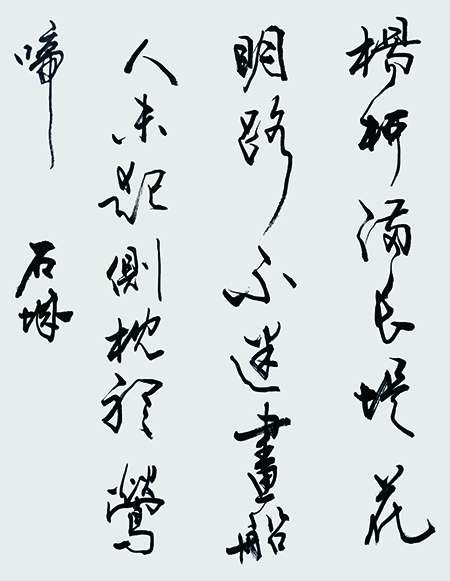 楊柳滿長堤花
明路不迷畫船
人未起側枕聽鶯
啼
石城